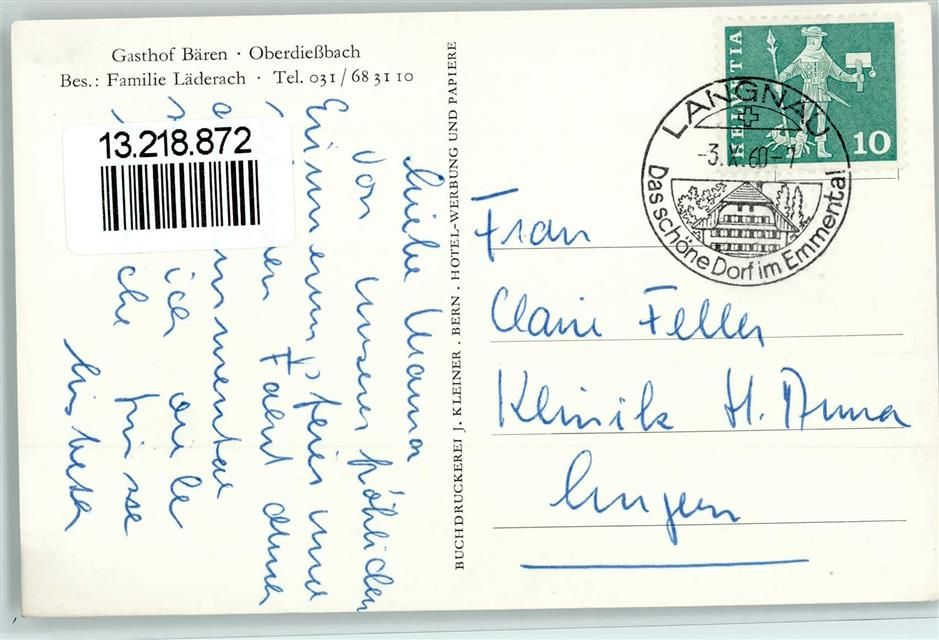 Gasthof Bären · Oberdießbach
Bes.: Familie Läderach · Tel. 031/68 31 10
13.218.872
BUCHDRUCKEREI J. KLEINER . BERN . HOTEL-WERBUNG UND PAPIERE
HELVETIA
10
LANGNAU
-3.X.60-7
Das schöne Dorf im Emmental
Liebe Mama
Von unserer fröhlichen
Erinnerungsfeier und
Fahrt durch
Emmental
ich viele
Grüsse
Lisbeth
Frau
Claire Feller
Klinik St. Anna
Luzern